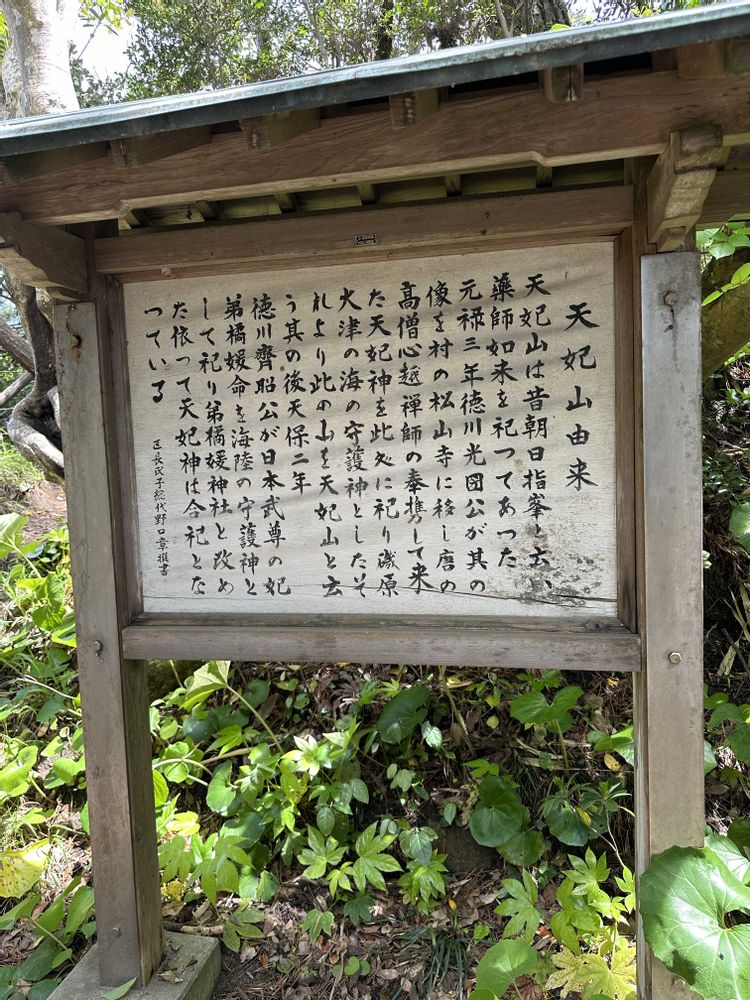 天妃山由来
天妃山は昔朝日指峯と云い
薬師如来を祀つてあつた
元禄三年徳川光圀公が其の
像を村の松山寺に移し唐の
高僧心越禅師の奉携して来
た天妃神を此処に祀り磯原
大津の海の守護神としたそ
れより此の山を天妃山と云
う其の後天保二年
徳川齊昭公が日本武尊の妃
弟橘媛命を海陸の守護神と
して祀り弟橘媛神社と改め
た依つて天妃神は合祀とな
つている
区長氏子総代野口章撰書